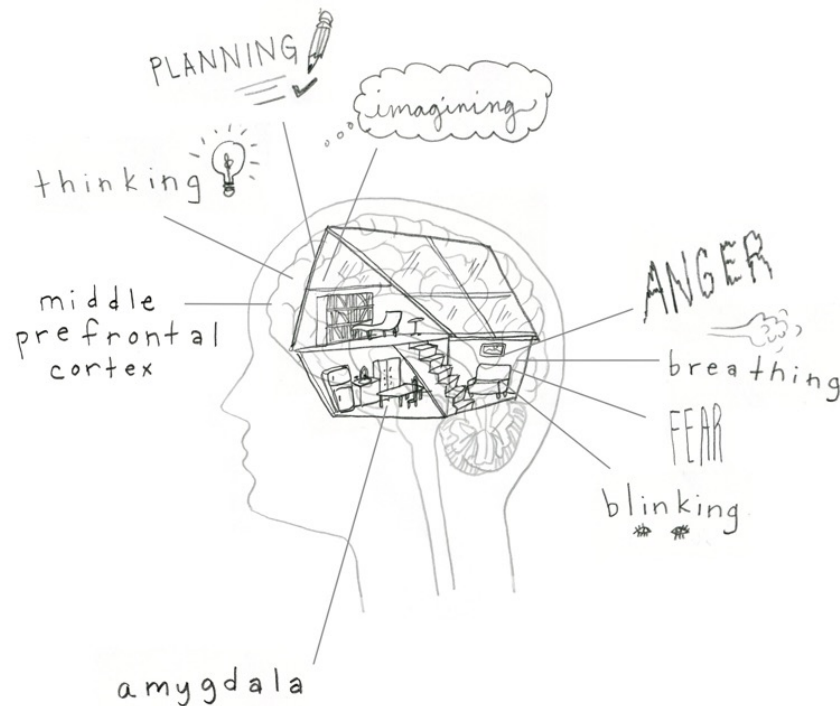 PLANNING
imagining
thinking
middle
prefrontal
cortex
ANGER
breathing
FEAR
blinking
amygdala